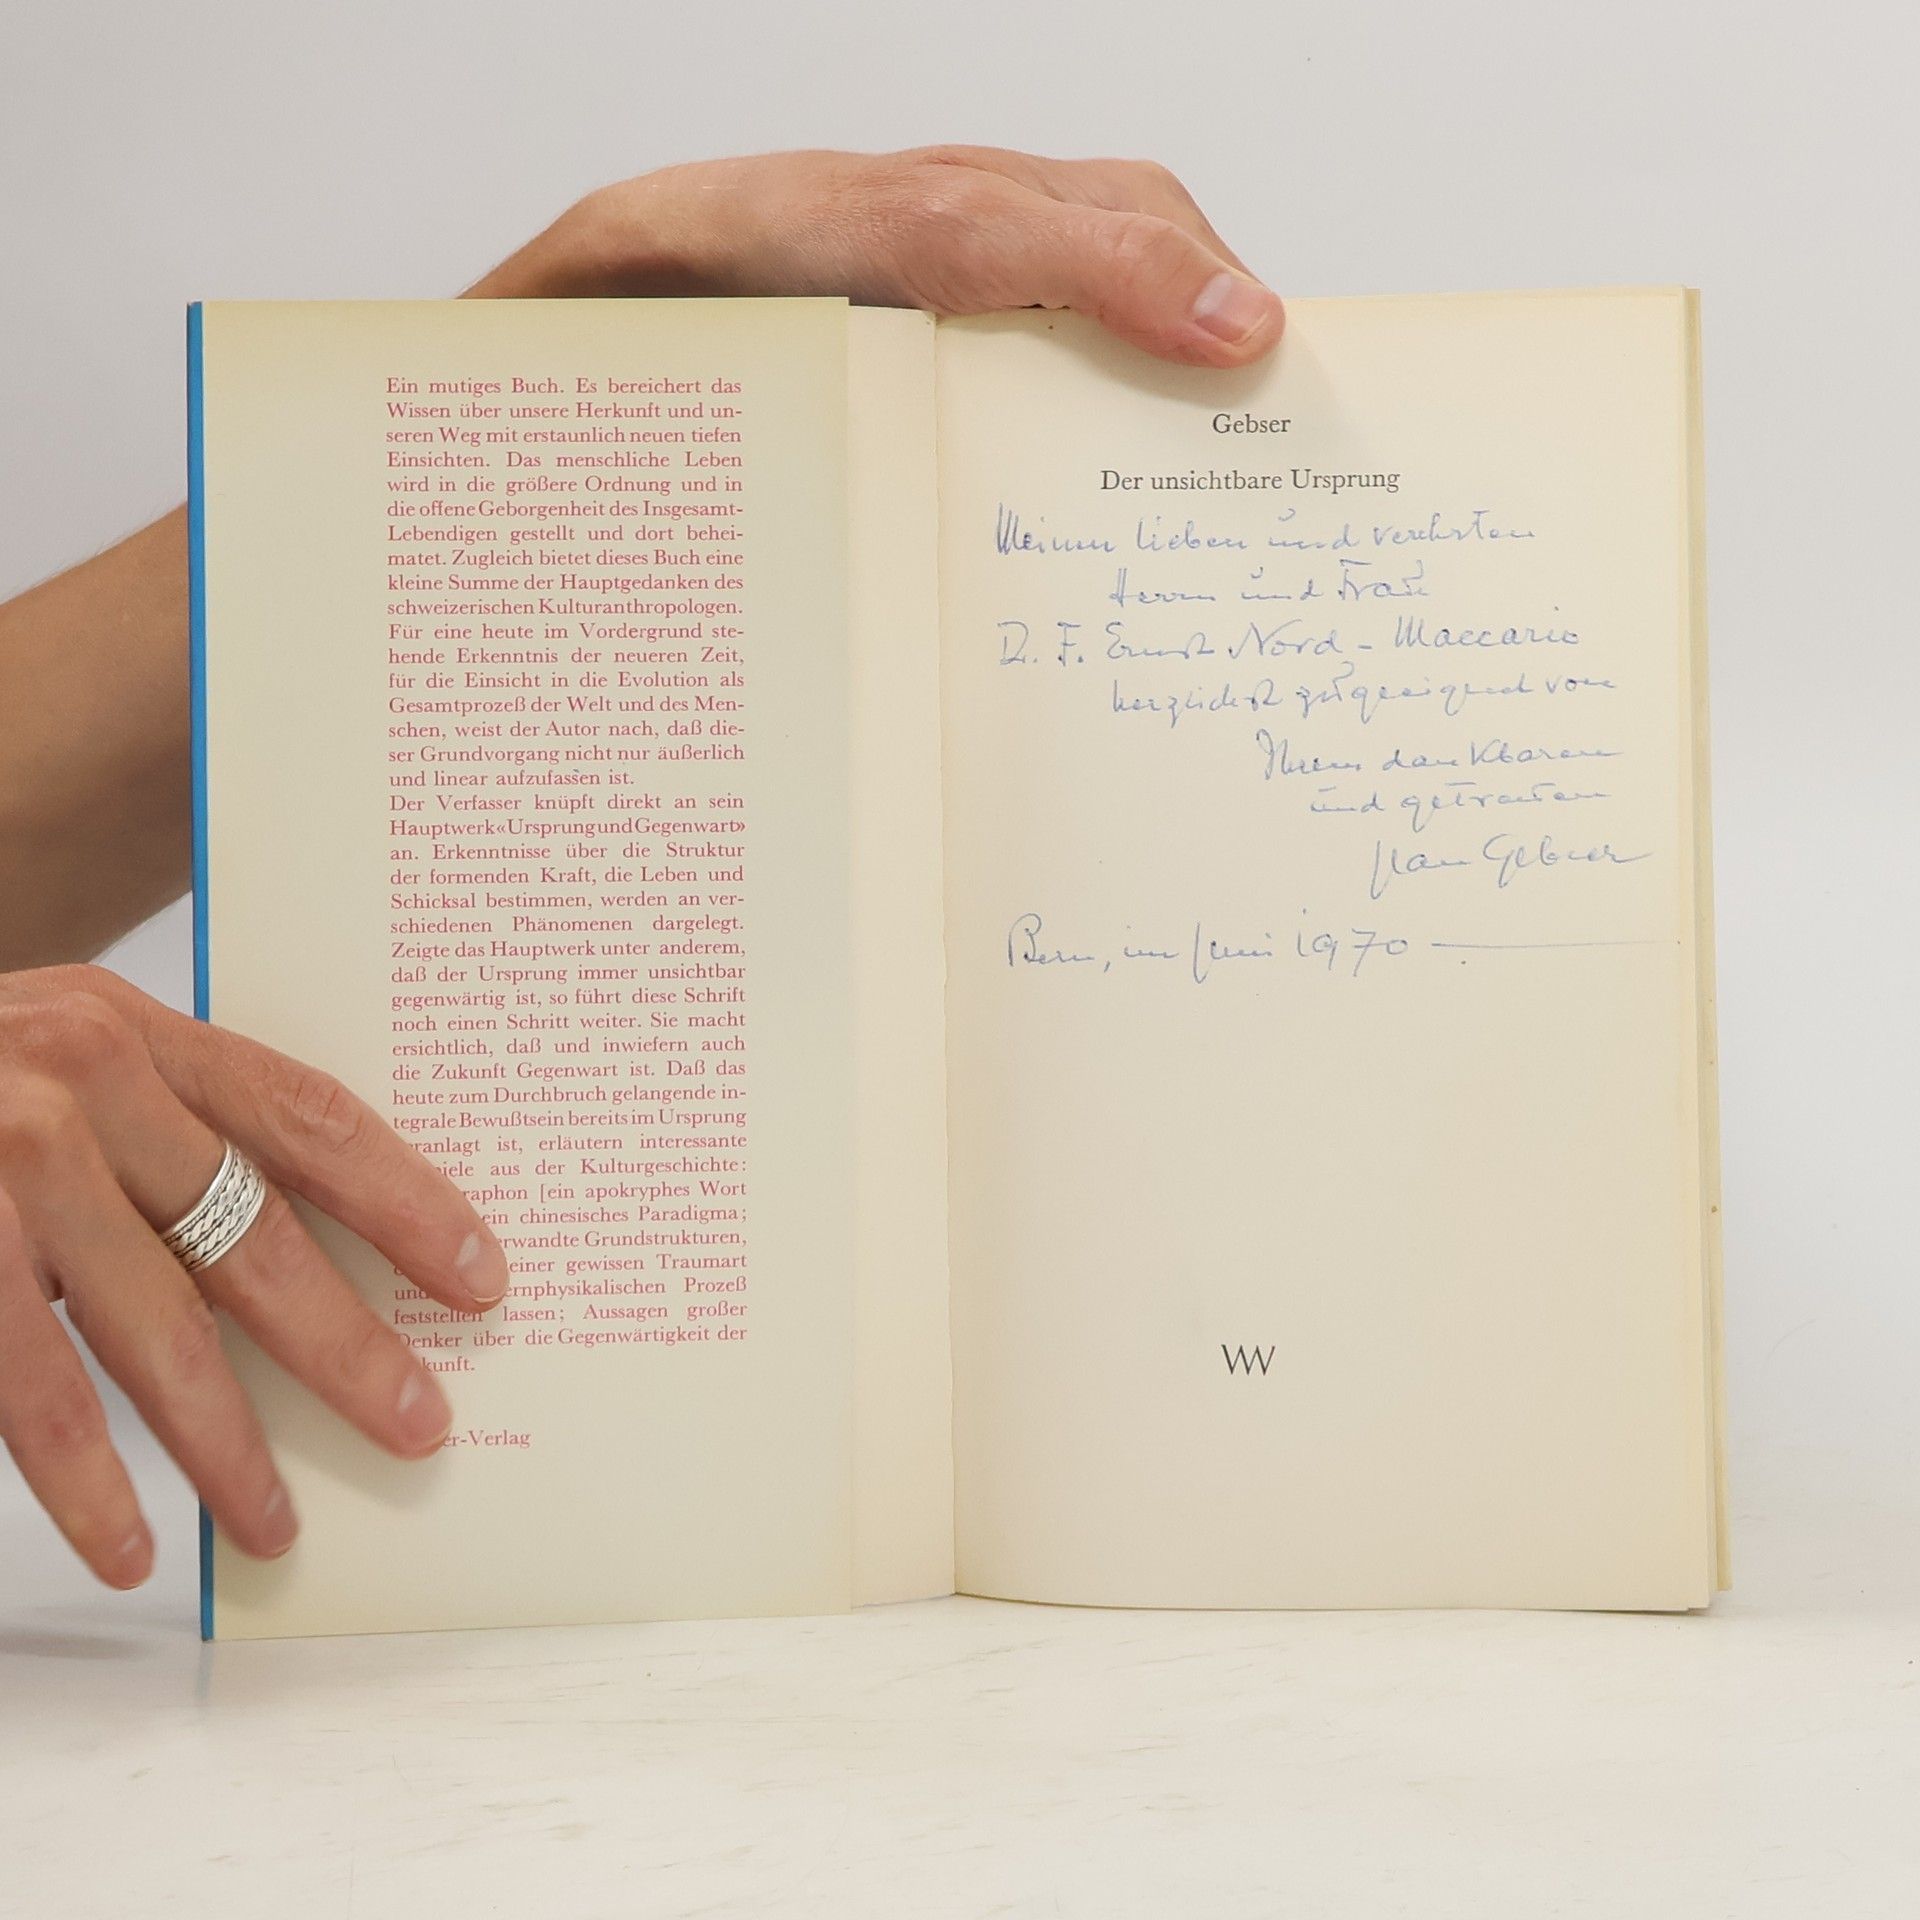 Ein mutiges Buch. Es bereichert das
Wissen über unsere Herkunft und un-
seren Weg mit erstaunlich neuen tiefen
Einsichten. Das menschliche Leben
wird in die größere Ordnung und in
die offene Geborgenheit des Insgesamt-
Lebendigen gestellt und dort behei-
matet. Zugleich bietet dieses Buch eine
kleine Summe der Hauptgedanken des
schweizerischen Kulturanthropologen.
Für eine heute im Vordergrund ste-
hende Erkenntnis der neueren Zeit,
für die Einsicht in die Evolution als
Gesamtprozeß der Welt und des Men-
schen, weist der Autor nach, daß die-
ser Grundvorgang nicht nur äußerlich
und linear aufzufassen ist.
Der Verfasser knüpft direkt an sein
Hauptwerk «Ursprung und Gegenwart»
an. Erkenntnisse über die Struktur
der formenden Kraft, die Leben und
Schicksal bestimmen, werden an ver-
schiedenen Phänomenen dargelegt.
Zeigte das Hauptwerk unter anderem,
daß der Ursprung immer unsichtbar
gegenwärtig ist, so führt diese Schrift
noch einen Schritt weiter. Sie macht
ersichtlich, daß und inwiefern auch
die Zukunft Gegenwart ist. Daß das
heute zum Durchbruch gelangende in-
tegrale Bewußtsein bereits im Ursprung
ranlagt ist, erläutern interessante
iele aus der Kulturgeschichte:
raphon [ein apokryphes Wort
ein chinesisches Paradigma;
rwandte Grundstrukturen,
einer gewissen Traumart
und ernphysikalischen Prozeß
feststellen lassen; Aussagen großer
Denker über die Gegenwärtigkeit der
kunft.
er-Verlag
Gebser
Der unsichtbare Ursprung
Meinen lieben und verehrten
Herrn und Frau
D. F. Ernst Nord - Maccario
herzlichst zugeeignet von
Ihrem dankbaren
und getreuen
Jean Gebser
Bern, im Juni 1970 -
VW